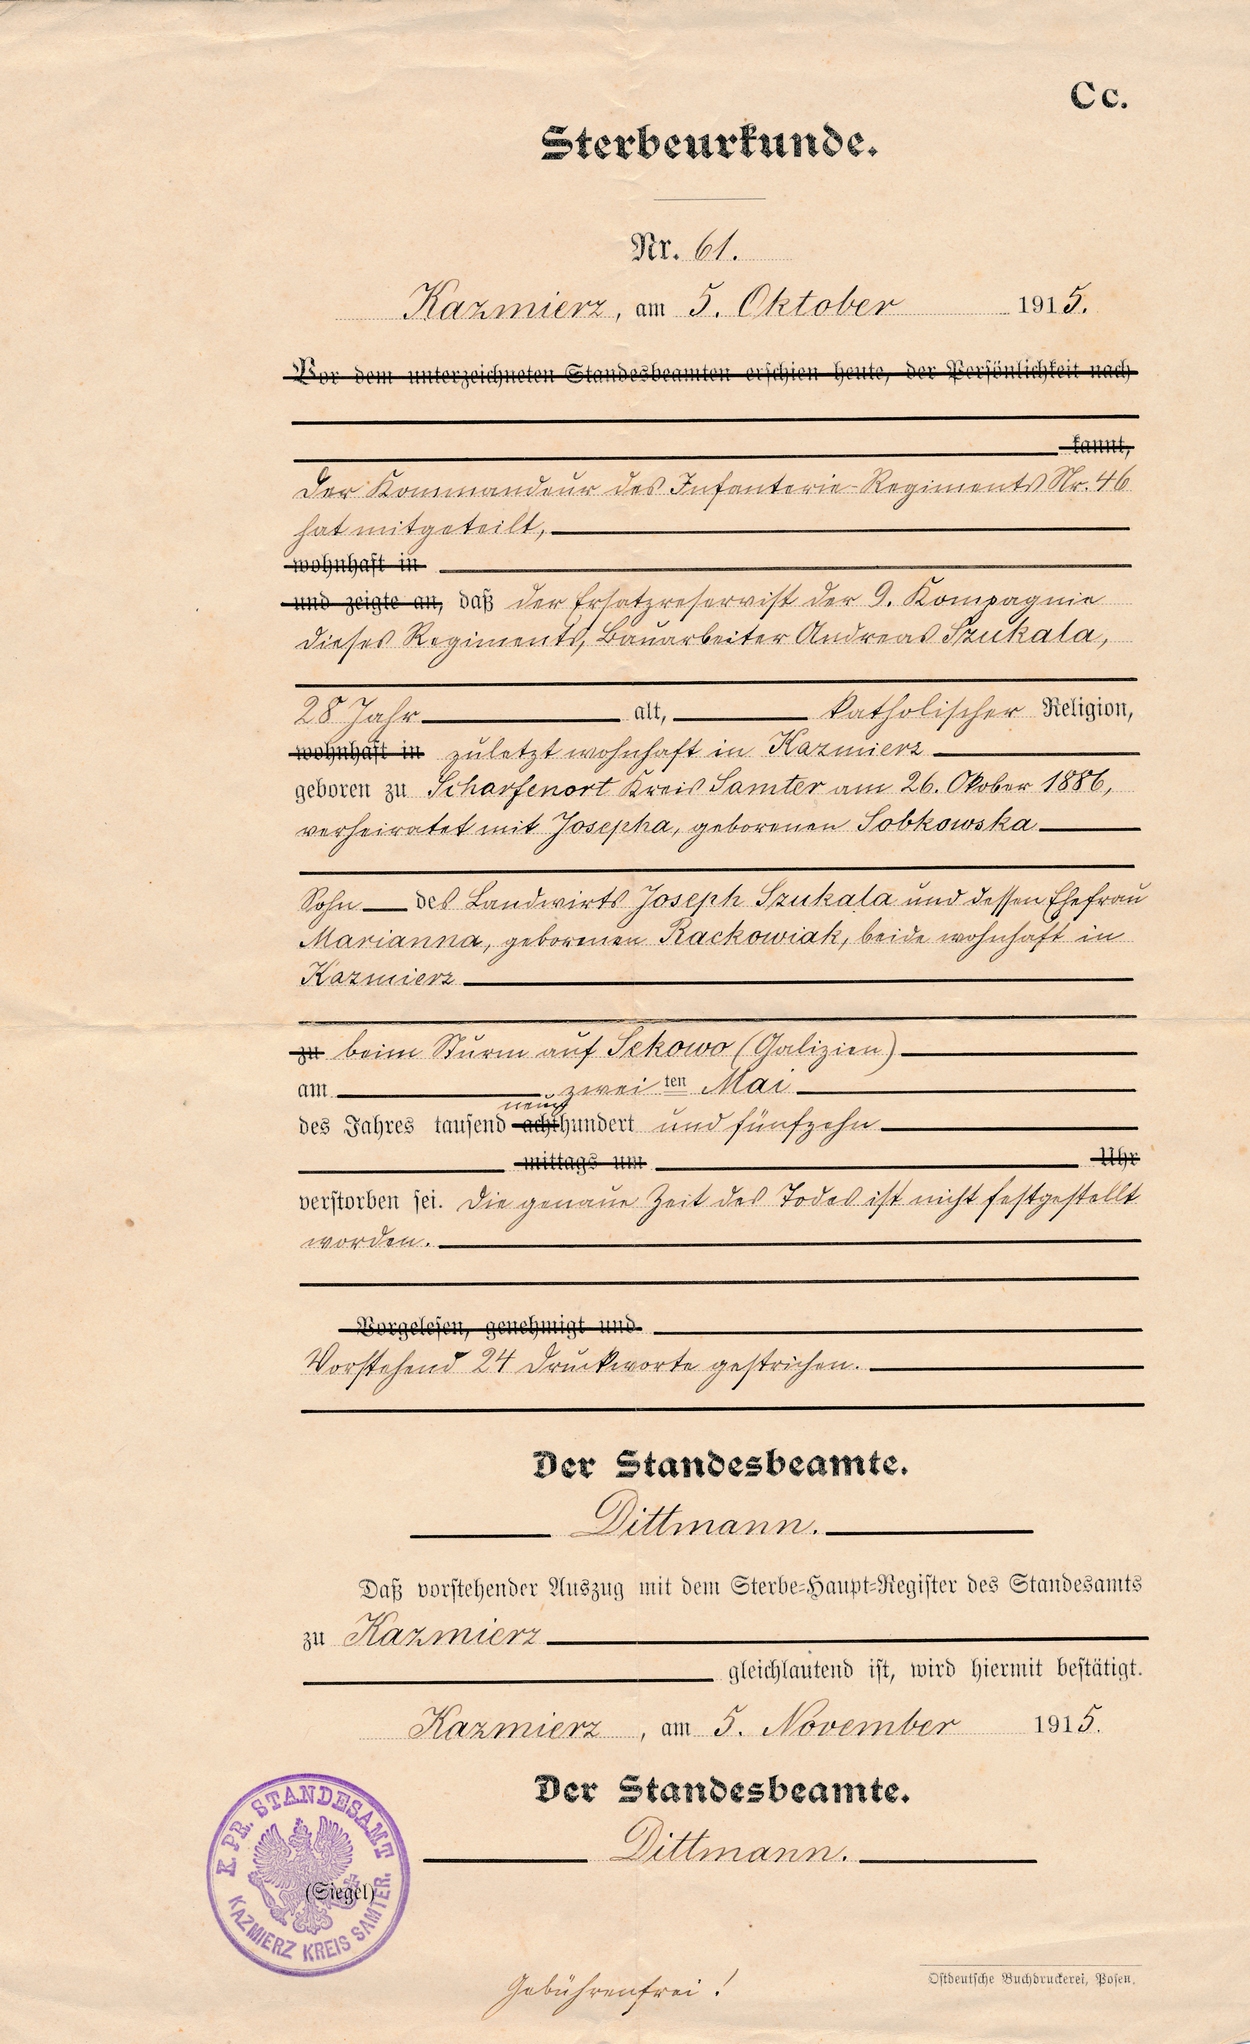 Cc.
Sterbeurkunde.
Nr. 61.
Kazmierz, am 5. Oktober 1915.
Vor dem unterzeichneten Standesbeamten erschien heute, der Persönlichkeit nach
kannt,
Der Kommandeur des Infanterie-Regiments Nr. 46
hat mitgeteilt,
wohnhaft in
und zeigte an, daß der Ersatzreservist der 9. Kompagnie
dieses Regiments, Bauarbeiter Andreas Szukala,
28 Jahr alt, katholischer Religion,
wohnhaft in zuletzt wohnhaft in Kazmierz
geboren zu Scharfenort Kreis Samter am 26. Okober 1886,
verheiratet mit Josepha, geborenen Sobkowska
Sohn des Landwirts Joseph Szukala und dessen Ehefrau
Marianna, geborenen Rackowiak, beide wohnhaft in
Kazmierz
zu beim Sturm auf Sekowo (Galizien)
am zwei ten Mai
neun
des Jahres tausend achthundert und fünfzehn
mittags um Uhr
verstorben sei. Die genaue Zeit des Todes ist nicht festgestellt
worden.
Vorgelesen, genehmigt und
Vorstehend 24 Druckworte gestrichen.
Der Standesbeamte.
Dittmann.
Daß vorstehender Auszug mit dem Sterbe-Haupt-Register des Standesamts
zu Kazmierz
gleichlautend ist, wird hiermit bestätigt.
Kazmierz, am 5. November 1915.
Der Standesbeamte.
Dittmann.
K. PR. STANDESAMT
KAZMIERZ KREIS SAMTER.
(Siegel)
Gebührenfrei!
Ostdeutsche Buchdruckerei, Posen.